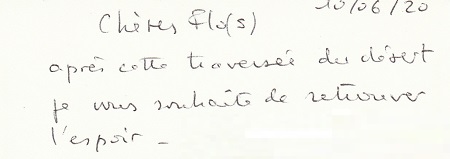 10/06/20
Chères Flo(s)
après cette traversée du désert
je vous souhaite de retrouver
l'espoir -